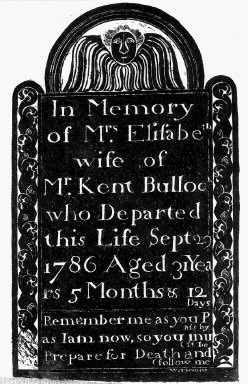 In Memory
of Mrs Elisabeth
wife of
Mr Kent Bulloc
who Departed
this Life Sept 29
1786 Aged 31 Yea
rs 5 Months & 12
Days
Remember me as you P
ass by
as I am now, so you mu
st be
Prepare for Death and
follow me